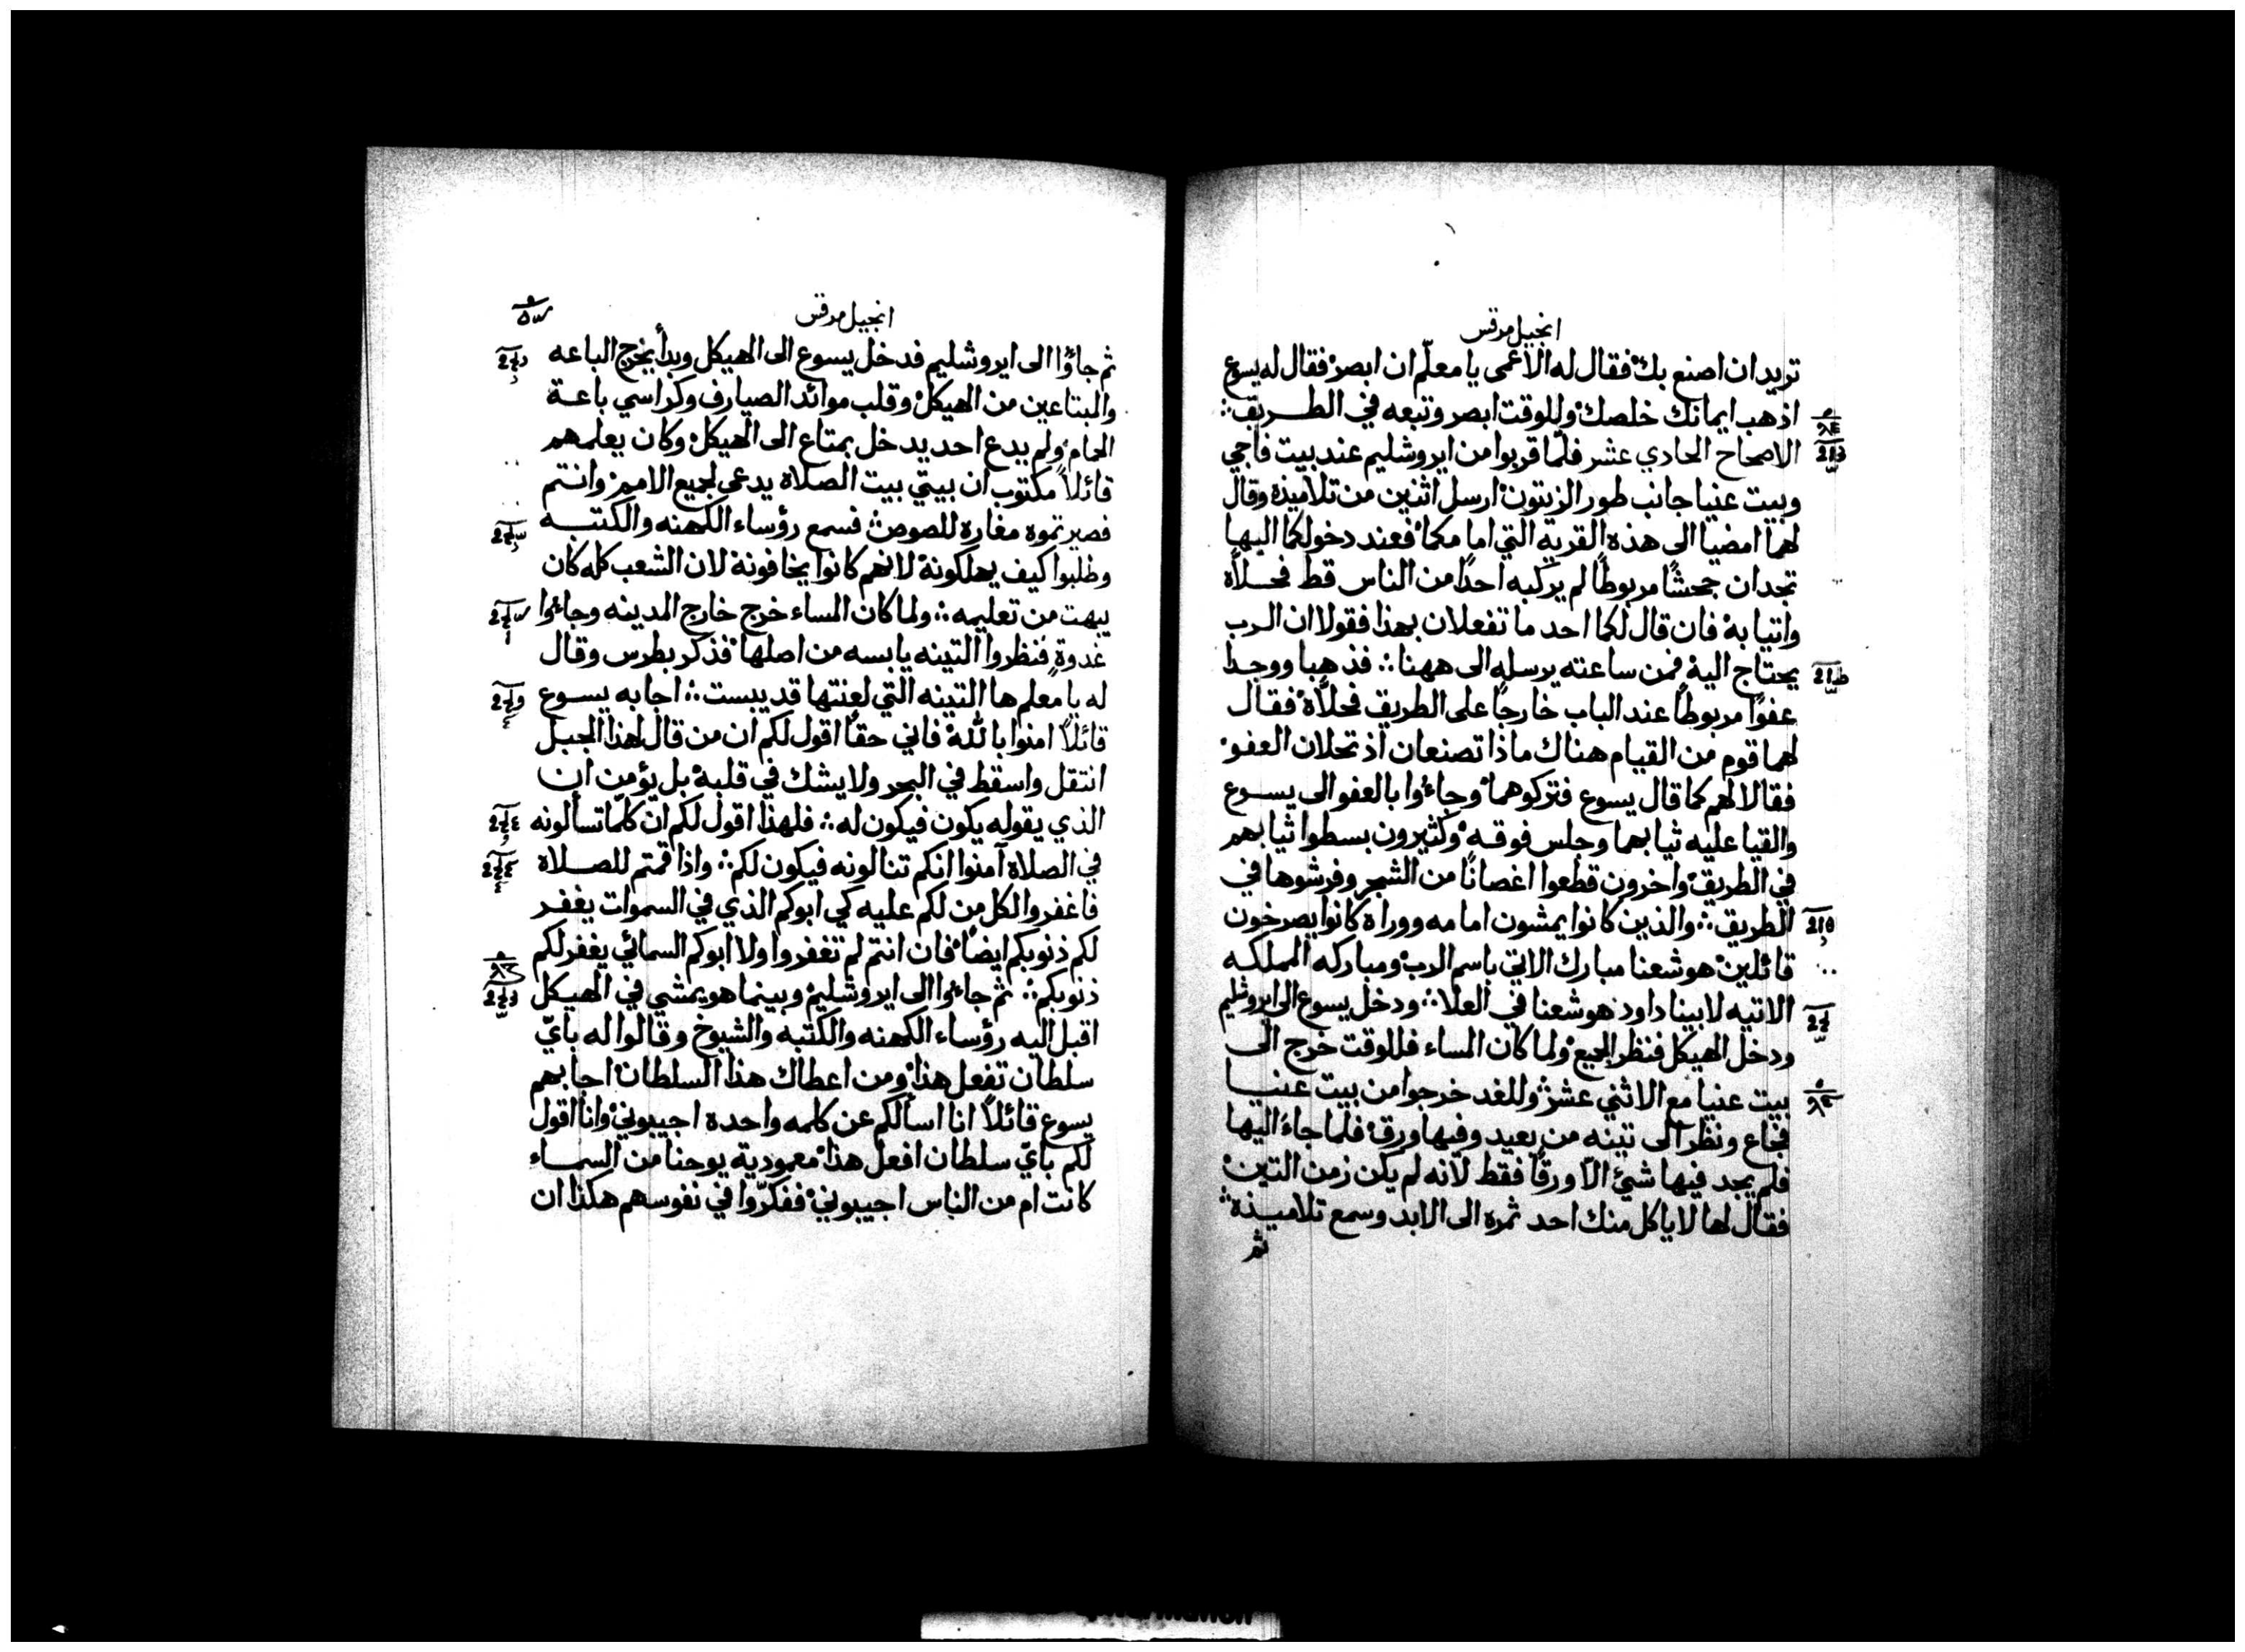 انجيل مرقس
تريد ان اصنع بك فقال له الاعمى يا معلّم ان ابصر فقال له يسوع
اذهب ايمانك خلصك وللوقت ابصر وتبعه في الطريق
الاصحاح الحادي عشر فلمّا قربوا من ايروشليم عند بيت فاجي
وبيت عنيا جانب طور الزيتون ارسل اثنين من تلاميذه وقال
لهما امضيا الى هذه القريه التي امامكما فعند دخولكما اليها
تجدان جحشًا مربوطًا لم يركبه احدًا من الناس قط فحلاه
واتيا به فان قال لكما احد ما تفعلان بهذا فقولا ان الرب
يحتاج اليه فمن ساعته يرسله الى ههنا ∴ فذهبا ووجدا
عفوًا مربوطًا عند الباب خارجًا على الطريق فحلاّه فقال
لهما قوم من القيام هناك ماذا تصنعان اذ تحلان العفو
فقالا لهم كما قال يسوع فتركوهما وجاءوا بالعفو الى يسوع
والقيا عليه ثيابهما وجلس فوقه وكثيرون بسطوا ثيابهم
في الطريق واخرون قطعوا اغصانًا من الشجر وفرشوها في
الطريق ∴ والذين كانوا يمشون امامه ووراه كانوا يصرخون
قائلين هوشعنا مبارك الاتي باسم الرب ومباركه المملكه
الاتيه لابينا داود هوشعنا في العلا ∴ ودخل يسوع الى ايروشليم
ودخل الهيكل فنظر الجميع ولما كان المساء فللوقت خرج الى
بيت عنيا مع الاثني عشر وللغد خرجوا من بيت عنيا
فجاع ونظر الى تينه من بعيد وفيها ورق فلما جاء اليها
فلم يجد فيها شيئ الاّ ورقًا فقط لانه لم يكن زمن التين
فقال لها لا ياكل منك احد ثمره الى الابد وسمع تلاميذه
ثم
انجيل مرقس
ثم جاؤا الى ايروشليم فدخل يسوع الى الهيكل وبدأ يخرج الباعه
والمبتاعين من الهيكل وقلب موائد الصيارف وكراسي باعة
الحمام ولم يدع احد يدخل بمتاع الى الهيكل وكان يعلمهم
قائلاً مكتوب ان بيتي بيت الصلاة يدعى لجميع الامم وانتم
فصيرتموه مغاره للصوص فسمع رؤساء الكهنه والكتبه
وطلبوا كيف يهلكونه لانهم كانوا يخافونه لان الشعب كله كان
يبهت من تعليمه ∴ ولما كان المساء خرج خارج المدينه وجاءوا
غدوةً فنظروا التينه يابسه من اصلها فذكر بطرس وقال
له يا معلم ها التينه التي لعنتها قد يبست ∴ اجابه يسوع
قائلاً امنوا بالله فاني حقًا اقول لكم ان من قال لهذا الجبل
انتقل واسقط في البحر ولا يشك في قلبه بل يؤمن ان
الذي يقوله يكون فيكون له ∴ فلهذا اقول لكم ان كلما تسألونه
في الصلاة آمنوا انكم تنالونه فيكون لكم ∴ واذا قمتم للصلاة
فاغفروا لكل من لكم عليه كي ابوكم الذي في السموات يغفر
لكم ذنوبكم ايضًا فان انتم لم تغفروا ولا ابوكم السمائي يغفر لكم
ذنوبكم ∴ ثم جاءوا الى ايروشليم وبينما هو يمشي في الهيكل
اقبل اليه رؤساء الكهنه والكتبه والشيوخ وقالوا له بايّ
سلطان تفعل هذا ومن اعطاك هذا السلطان اجابهم
يسوع قائلاً انا اسألكم عن كلمه واحده اجيبوني وانا اقول
لكم بايّ سلطان افعل هذا معمودية يوحنا من السماء
كانت ام من الناس اجيبوني ففكرّوا في نفوسهم هكذا ان